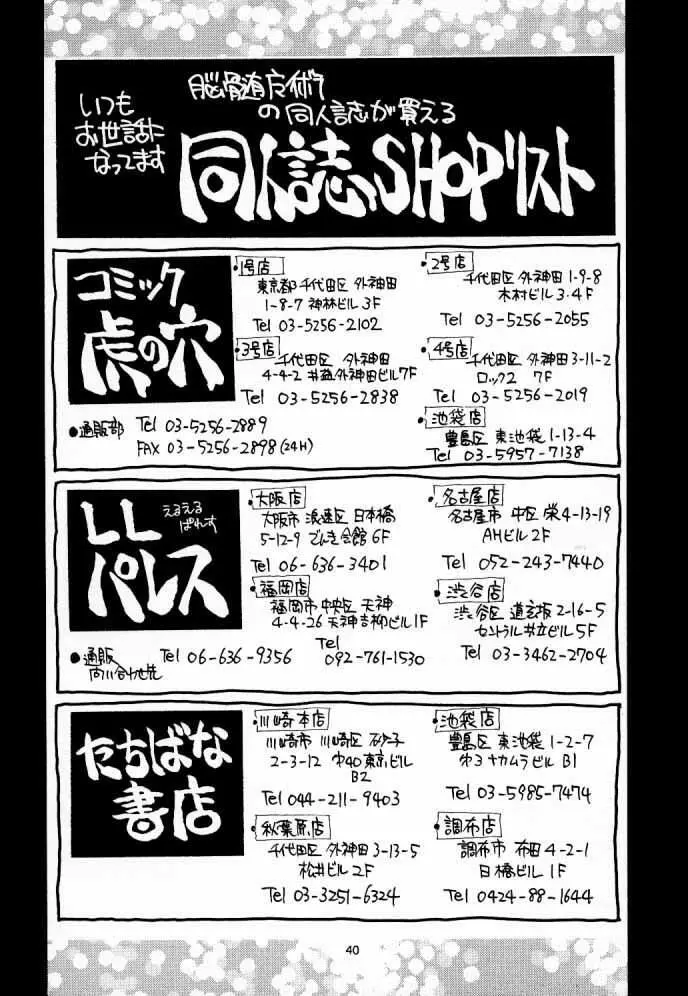 いつも
お世話に
なってます
脳髄
の同人誌が買える
同人誌SHOPリスト
コミック
虎の穴
・1号店
東京都千代田区 外神田
1-8-7 神林ビル 3F
Tel 03-5256-2102
・2号店
千代田区 外神田 1-9-8
木村ビル 3.4F
Tel 03-5256-2055
・3号店
千代田区 外神田
4-4-2 外神田ビル7F
Tel 03-5256-2838
・4号店
千代田区 外神田3-11-2
ロック2 7F
Tel 03-5256-2019
・池袋店
豊島区 東池袋1-13-4
Tel 03-5957-7138
●通販部 Tel 03-5256-2889
FAX 03-5256-2898 (24H)
LL
パレス
えるえる
ぱれす
・大阪店
大阪市 浪速区 日本橋
5-12-9 でんき会館 6F
Tel 06-636-3401
・名古屋店
名古屋市 中区 栄4-13-19
AHビル 2F
Tel 052-243-7440
・福岡店
福岡市 中央区 天神
4-4-26 天神吉柳ビル1F
Tel
092-761-1530
・渋谷店
渋谷区 道玄坂2-16-5
セントラル共立ビル5F
Tel 03-3462-2704
●通販 Tel 06-636-9356
問い合わせ先
たちばな
書店
・川崎本店
川崎市 川崎区 砂子
2-3-12 オ40東京ビル
B2
Tel 044-211-9403
・池袋店
豊島区 東池袋 1-2-7
オ3ナカムラビル B1
Tel 03-5985-7474
・秋葉原店
千代田区 外神田 3-13-5
松井ビル 2F
Tel 03-3251-6324
・調布店
調布市 布田 4-2-1
日橋ビル 1F
Tel 0424-88-1644
40